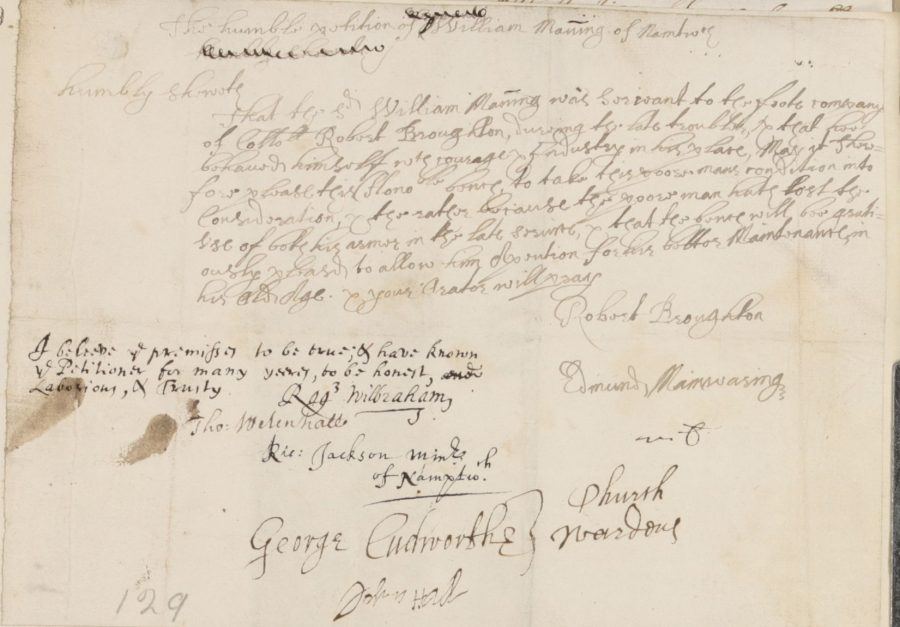 The humble petition of William Maning of Namtwch
humbly sheweth
That the sd William Maning was servant to the foote company
of Collo:ll Robert Broughton, during the late troubles, & that hee
behaved himselfe with courage & Industry in his place, May it there-
fore please this Hono:ble bench, to take this poore mans condition into
Consideration, & the rather because the poore man hath lost the
use of both his armes in the late service, & that the bench will bee grati-
ously pleasd to allow him a pention for his better Maintenance in
his old Age. & your Orator will pray
Robert Broughton
I beleeve ye premisses to be true; & have known
ye Petitioner for many yeeres, to be honest,
Laborious, & Trusty
Edmund Mainwaring
Rog: Wilbraham
Tho: Wetenhall
Ric: Jackson minr
of Namptwch.
George Cudworthe } Church
Wardens
John Hall
129